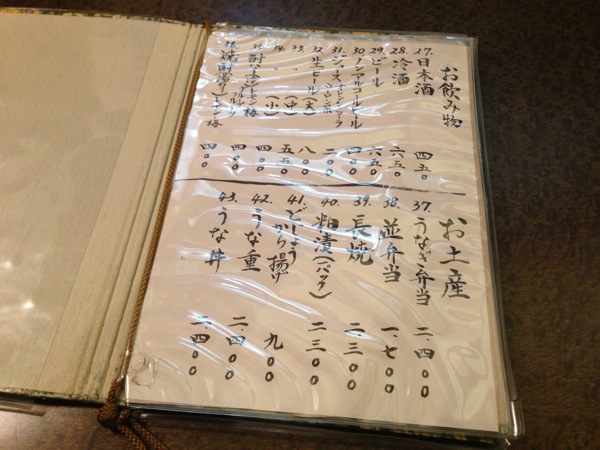 お飲み物
27. 日本酒 四五〇
28. 冷酒 六五〇
29. ビール 六五〇
30. ノンアルコールビール 四〇〇
31. ジュース 二〇〇
32. 生ビール (大) 八〇〇
33. 〃 (中) 五五〇
34. 〃 (小) 四〇〇
四〇〇
四〇〇
お土産
37. うなぎ弁当 二、四〇〇
38. 並弁当 一、七〇〇
39. 長焼 二、三〇〇
40. 粕漬(パック) 二、三〇〇
41. どじょうから揚げ 九〇〇
42. うな重 二、四〇〇
43. うな丼 二、四〇〇